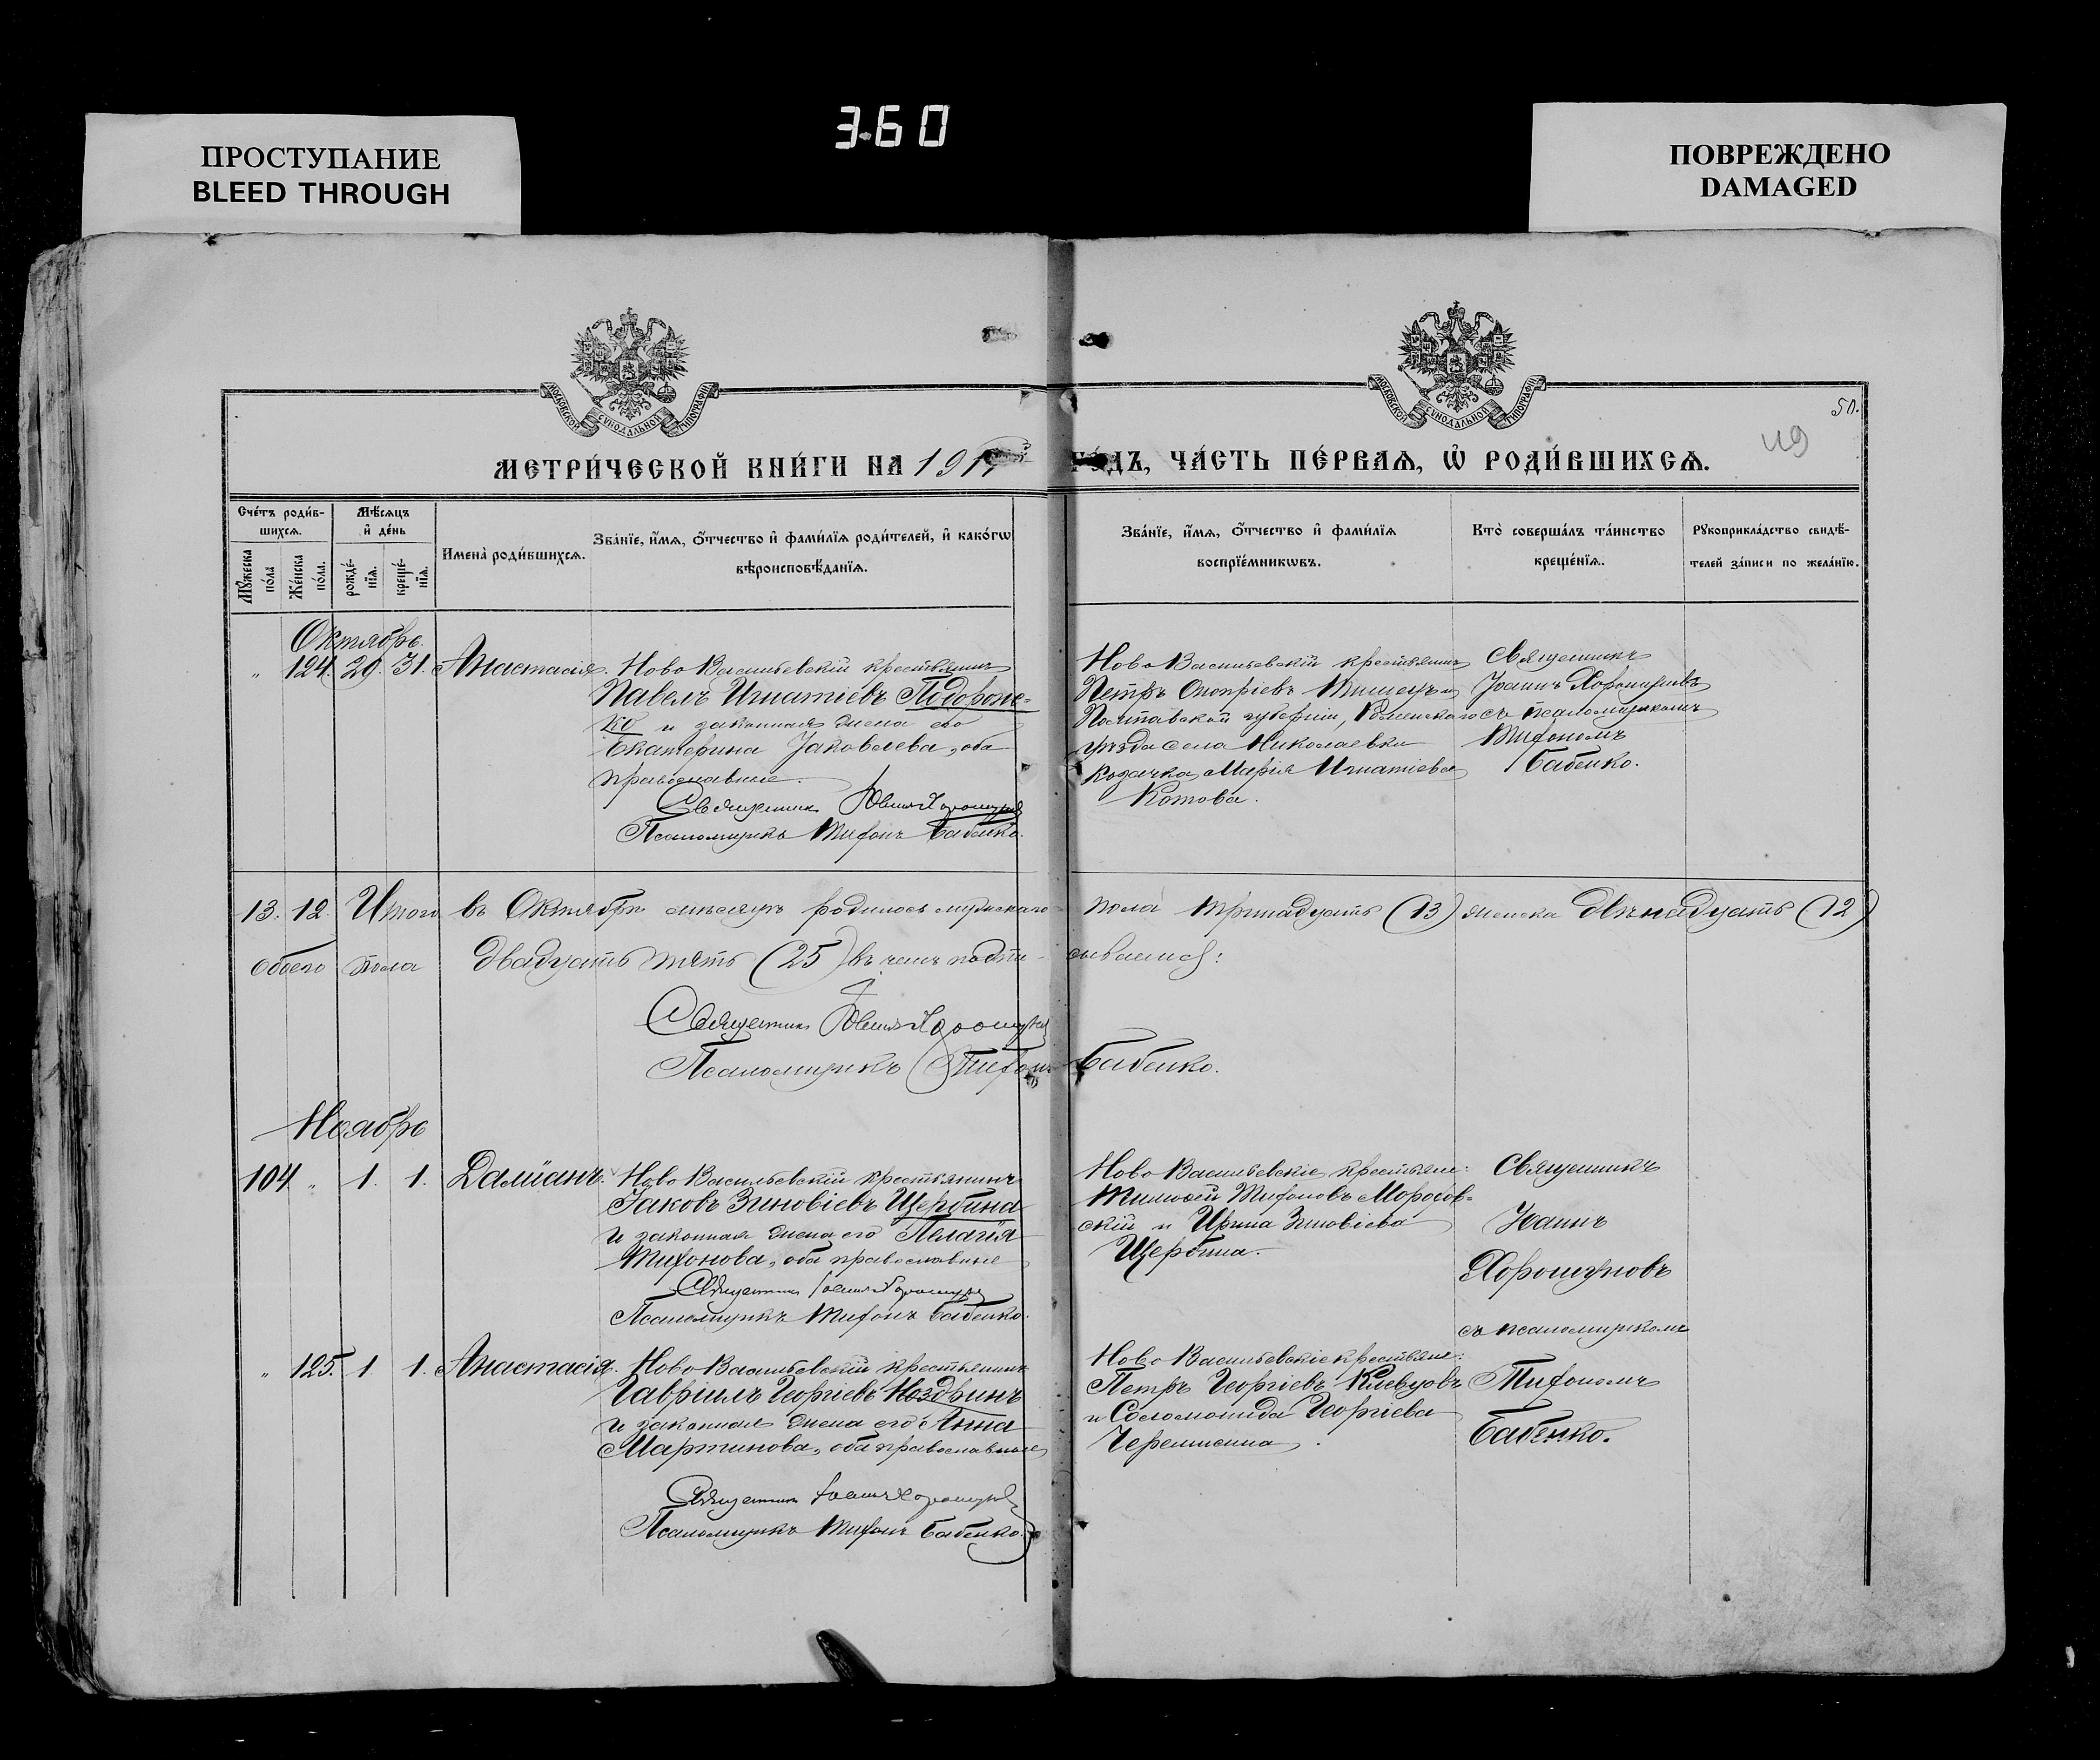 3-60
ПРОСТУПАНИЕ
BLEED THROUGH
ПОВРЕЖДЕНО
DAMAGED
МОСКОВСКОЙ СУНОДАЛЬНОЙ ТИПОГРАФІИ
МОСКОВСКОЙ СУНОДАЛЬНОЙ ТИПОГРАФІИ
50.
49
МЕТРИ́ЧЕСКОЙ КНИ́ГИ НА 191
ГО́ДЪ, ЧА́СТЬ ПЕ́РВАѦ, Ѡ РОДИ́ВШИХСѦ.
Сче́тъ роди́в-
шихсѧ.
Мꙋ́жеска по́ла
Же́нска по́ла.
Мѣ́сѧцъ
и҆ де́нь
рожде́-
нїѧ.
креще́-
нїѧ.
Имена̀ роди́вшихсѧ.
Зва́нїе, и҆́мѧ, ѻ҆́тчество и҆ фами́лїѧ роди́телей, и҆ како́гѡ
вѣроисповѣ́данїѧ.
Зва́нїе, и҆́мѧ, ѻ҆́тчество и҆ фами́лїѧ
воспрїе́мникѡвъ.
Кто̀ соверша́лъ та́инство
креще́нїѧ.
Рꙋкоприкла́дство свидѣ́-
телей за́писи по жела́нїю.
Октябрь.
" 124. 29. 31. Анастасія. Ново Васильевскій крестьянинъ
Павелъ Игнатіевъ Подороже-
ко и законная жена его
Екатерина Іаковлева, оба
православные.
Священникъ Іоаннъ Хорошуновъ
Псаломщикъ Тифонъ Бабенко.
Ново Васильевскій крестьянинъ
Петръ Онопріевъ и
Полтавской губерніи, Роменскаго
уѣзда села Николаевки
козачка Марія Игнатіева
Котова.
Священникъ
Іоаннъ Хорошуновъ
съ псаломщикомъ
Тифономъ
Бабенко.
13. 12. Итого въ Октябрѣ мѣсяцѣ родилось мужескаго пола тринадцать (13) женска двѣнадцать (12)
обоего пола двадцать пять (25) въ чемъ подпи- сываемся:
Священникъ Іоаннъ Хорошуновъ
Псаломщикъ Тифонъ Бабенко.
Ноябрь
104 " 1. 1. Даміанъ. Ново Васильевскій крестьянинъ
Іаковъ Зиновіевъ Щербина
и законная жена его Пелагія
Тифонова, оба православные
Священникъ Іоаннъ Хорошуновъ
Псаломщикъ Тифонъ Бабенко.
Ново Васильевскіе крестьяне:
Тимоѳей ТифоновъМорозов-
скій и Ирина Зиновіева
Щербина.
Священникъ
Іоаннъ
Хорошуновъ
съ псаломщикомъ
" 125. 1. 1. Анастасія. Ново Васильевскій крестьянинъ
Гавріилъ Георгіевъ Ноздринъ
и законная жена его Анна
Мартинова, оба православные
Священникъ Іоаннъ Хорошуновъ
Псаломщикъ Тифонъ Бабенко.
Ново Васильевскіе крестьяне:
Петръ Георгіевъ Клевцовъ
и Соломонида Георгіева
Черемисина.
Тифономъ
Бабенко.